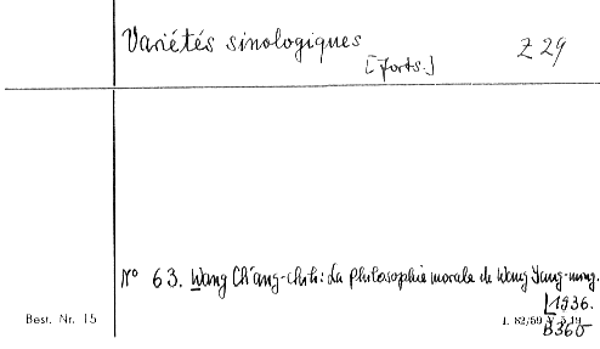 Variétés sinologiques
[Forts.]
Z 29
N° 63. Wang Ch'ang-chih: La philosophie morale de Wang Yang-ming.
1936.
Best. Nr. 15
B 360